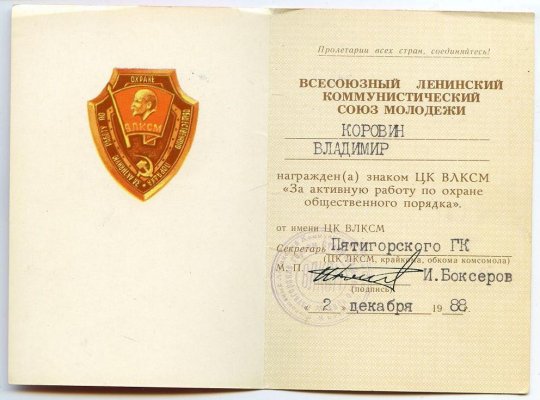 ОХРАНЕ
ОБЩЕСТВЕННОГО
ПОРЯДКА
ЗА АКТИВНУЮ
РАБОТУ ПО
ВЛКСМ
Пролетарии всех стран, соединяйтесь!
ВСЕСОЮЗНЫЙ ЛЕНИНСКИЙ
КОММУНИСТИЧЕСКИЙ
СОЮЗ МОЛОДЕЖИ
КОРОВИН
ВЛАДИМИР
награжден(а) знаком ЦК ВЛКСМ
«За активную работу по охране
общественного порядка».
от имени ЦК ВЛКСМ
Секретарь Пятигорского ГК
(ЦК ЛКСМ, крайкома, обкома комсомола)
М. П. И.Боксеров
(подпись)
« 2 » декабря 1988